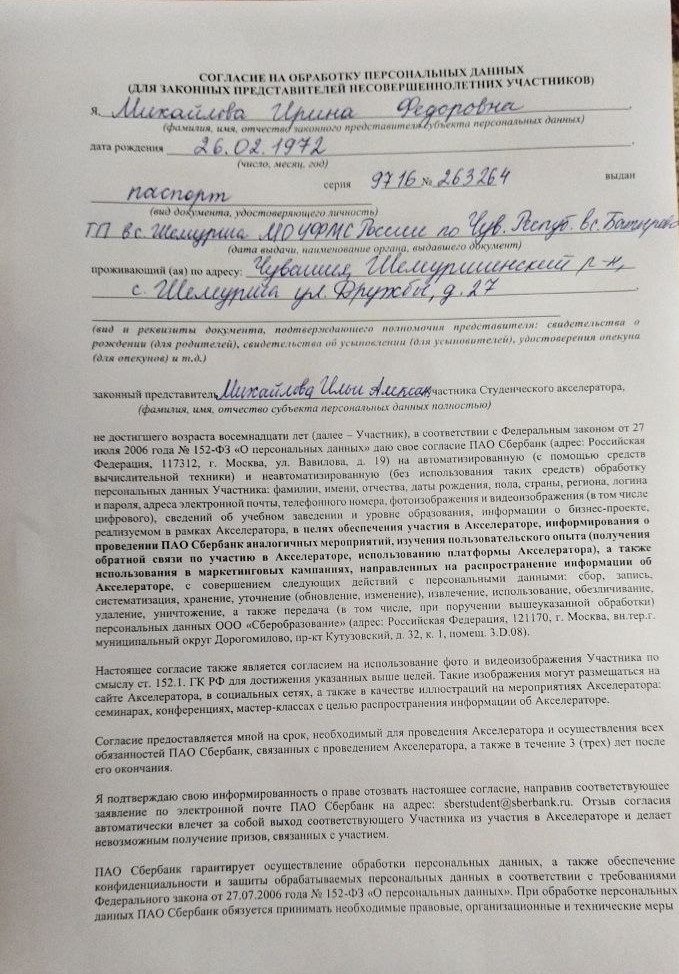 СОГЛАСИЕ НА ОБРАБОТКУ ПЕРСОНАЛЬНЫХ ДАННЫХ
(ДЛЯ ЗАКОННЫХ ПРЕДСТАВИТЕЛЕЙ НЕСОВЕРШЕННОЛЕТНИХ УЧАСТНИКОВ)
Я, Михайлова Ирина Федоровна,
(фамилия, имя, отчество законного представителя субъекта персональных данных)
дата рождения 26.02.1972,
(число, месяц, год)
паспорт серия 9716 № 263264 выдан
(вид документа, удостоверяющего личность)
ТП в с. Шемурша МО УФМС России по Чув. Респуб. в с.
(дата выдачи, наименование органа, выдавшего документ)
проживающий (ая) по адресу: Чувашия, Шемуршинский р-н,
с. Шемурша ул. Дружбы, д. 27.
(вид и реквизиты документа, подтверждающего полномочия представителя: свидетельства о
рождении (для родителей), свидетельства об усыновлении (для усыновителей), удостоверения опекуна
(для опекунов) и т.д.)
законный представитель Михайлова Ильи участника Студенческого акселератора,
(фамилия, имя, отчество субъекта персональных данных полностью)
не достигшего возраста восемнадцати лет (далее – Участник), в соответствии с Федеральным законом от 27
июля 2006 года № 152-ФЗ «О персональных данных» даю свое согласие ПАО Сбербанк (адрес: Российская
Федерация, 117312, г. Москва, ул. Вавилова, д. 19) на автоматизированную (с помощью средств
вычислительной техники) и неавтоматизированную (без использования таких средств) обработку
персональных данных Участника: фамилии, имени, отчества, даты рождения, пола, страны, региона, логина
и пароля, адреса электронной почты, телефонного номера, фотоизображения и видеоизображения (в том числе
цифрового), сведений об учебном заведении и уровне образования, информации о бизнес-проекте,
реализуемом в рамках Акселератора, в целях обеспечения участия в Акселераторе, информирования о
проведении ПАО Сбербанк аналогичных мероприятий, изучения пользовательского опыта (получения
обратной связи по участию в Акселераторе, использованию платформы Акселератора), а также
использования в маркетинговых кампаниях, направленных на распространение информации об
Акселераторе, с совершением следующих действий с персональными данными: сбор, запись,
систематизация, хранение, уточнение (обновление, изменение), извлечение, использование, обезличивание,
удаление, уничтожение, а также передача (в том числе, при поручении вышеуказанной обработки)
персональных данных ООО «Сберобразование» (адрес: Российская Федерация, 121170, г. Москва, вн.тер.г.
муниципальный округ Дорогомилово, пр-кт Кутузовский, д. 32, к. 1, помещ. 3.D.08).
Настоящее согласие также является согласием на использование фото и видеоизображения Участника по
смыслу ст. 152.1. ГК РФ для достижения указанных выше целей. Такие изображения могут размещаться на
сайте Акселератора, в социальных сетях, а также в качестве иллюстраций на мероприятиях Акселератора:
семинарах, конференциях, мастер-классах с целью распространения информации об Акселераторе.
Согласие предоставляется мной на срок, необходимый для проведения Акселератора и осуществления всех
обязанностей ПАО Сбербанк, связанных с проведением Акселератора, а также в течение 3 (трех) лет после
его окончания.
Я подтверждаю свою информированность о праве отозвать настоящее согласие, направив соответствующее
заявление по электронной почте ПАО Сбербанк на адрес: sberstudent@sberbank.ru. Отзыв согласия
автоматически влечет за собой выход соответствующего Участника из участия в Акселераторе и делает
невозможным получение призов, связанных с участием.
ПАО Сбербанк гарантирует осуществление обработки персональных данных, а также обеспечение
конфиденциальности и защиты обрабатываемых персональных данных в соответствии с требованиями
Федерального закона от 27.07.2006 года № 152-ФЗ «О персональных данных». При обработке персональных
данных ПАО Сбербанк обязуется принимать необходимые правовые, организационные и технические меры